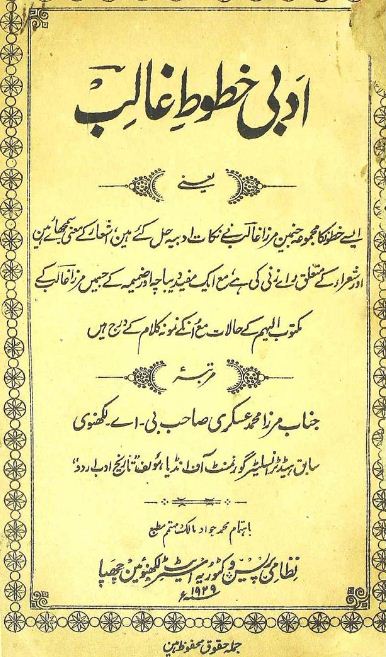 ادبی خطوطِ غالب
یعنے
ایسے خطوط کا مجموعہ جنمیں مرزا غالب نے نکات ادبیہ حل کئے ہیں، اشعار کے معنی سمجھائے ہیں
اور شعراء کے متعلق رائے زنی کی ہے، مع ایک مفید دیباچہ اور ضمیمہ کے جسمیں مرزا غالب کے
مکتوب الیہم کے حالات مع اُنکے نمونۂ کلام کے درج ہیں
مرتبۂ
جناب مرزا محمد عسکری صاحب بی۔ اے۔ لکھنوی
سابق ہیڈ ٹرانسلیٹر گورنمنٹ آف انڈیا، مؤلف "تاریخ ادب اردو"
باہتمام محمد جواد مالک مہتمم مطبع
نظامی پریس وکٹوریہ اسٹریٹ لکھنؤ میں چھپا
۱۹۲۹ء
جملہ حقوق محفوظ ہیں